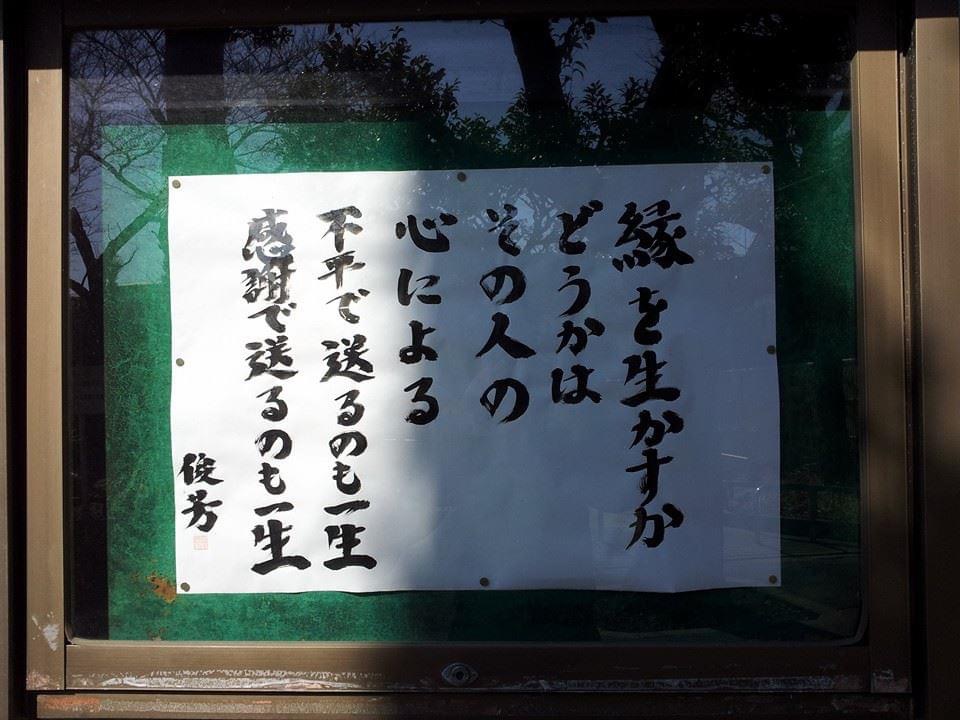 縁を生かすか
どうかは
その人の
心による
不平で送るのも一生
感謝で送るのも一生
俊芳